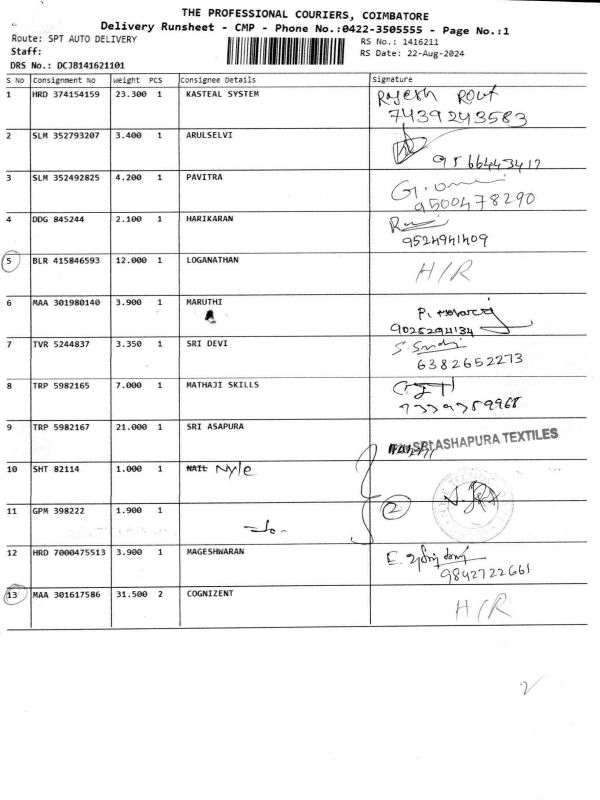 THE PROFESSIONAL COURIERS, COIMBATORE
Delivery Runsheet - CMP - Phone No.:0422-3505555 - Page No.:1
Route: SPT AUTO DELIVERY
RS No.: 1416211
Staff:
RS Date: 22-Aug-2024
DRS No.: DCJ8141621101
S No Consignment No Weight PCS Consignee Details Signature
1 HRD 374154159 23.300 1 KASTEAL SYSTEM Rajesh Rout
7439243583
2 SLM 352793207 3.400 1 ARULSELVI
9566443412
3 SLM 352492825 4.200 1 PAVITRA
9500478290
4 DDG 845244 2.100 1 HARIKARAN
9524941409
5 BLR 415846593 12.000 1 LOGANATHAN H/R
6 MAA 301980140 3.900 1 MARUTHI
9025294134
7 TVR 5244837 3.350 1 SRI DEVI
6382652273
8 TRP 5982165 7.000 1 MATHAJI SKILLS
7339759968
9 TRP 5982167 21.000 1 SRI ASAPURA
SRI ASHAPURA TEXTILES
10 SHT 82114 1.000 1 NAIL Nyle
11 GPM 398222 1.900 1 2
12 HRD 7000475513 3.900 1 MAGESHWARAN
9842722661
13 MAA 301617586 31.500 2 COGNIZENT H/R